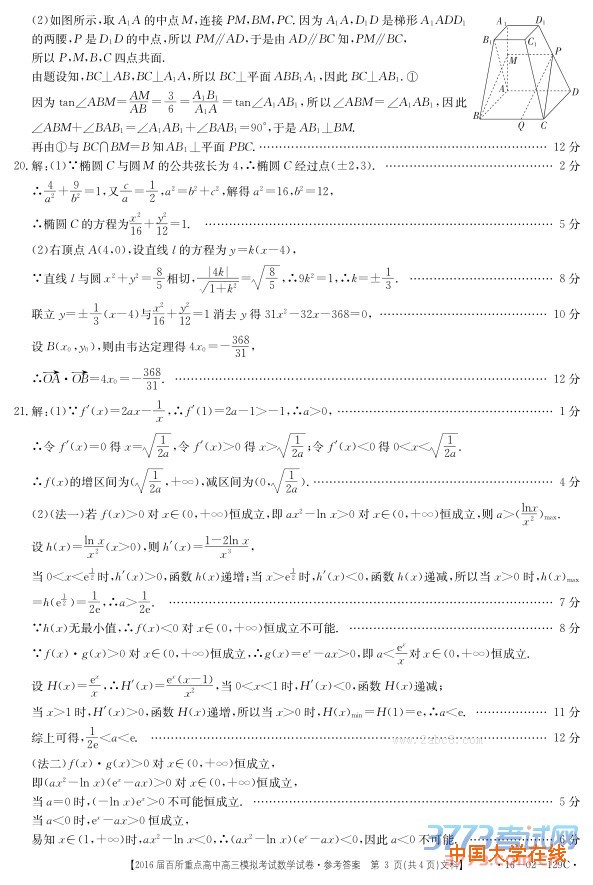 (2)如图所示,取A₁A的中点M,连接PM,BM,PC.因为A₁A,D₁D是梯形A₁ADD₁
的两腰,P是D₁D的中点,所以PM∥AD,于是由AD∥BC知,PM∥BC,
所以P,M,B,C四点共面.
由题设知,BC⊥AB,BC⊥A₁A,所以BC⊥平面ABB₁A₁,因此BC⊥AB₁.①
因为tan∠ABM=AM/AB=3/6=A₁B₁/A₁A=tan∠A₁AB₁,所以∠ABM=∠A₁AB₁,因此
∠ABM+∠BAB₁=∠A₁AB₁+∠BAB₁=90°,于是AB₁⊥BM.
再由①与BC∩BM=B知AB₁⊥平面PBC.…… 12分
A₁ D₁
B₁ C₁
M P
A D
B Q C
20.解:(1)∵椭圆C与圆M的公共弦长为4,∴椭圆C经过点(±2,3).…… 2分
∴4/a²+9/b²=1,又c/a=1/2,a²=b²+c²,解得a²=16,b²=12,
∴椭圆C的方程为x²/16+y²/12=1.…… 5分
(2)右顶点A(4,0),设直线l的方程为y=k(x−4),
∵直线l与圆x²+y²=8/5相切,|4k|/√(1+k²)=√(8/5),∴9k²=1,∴k=±1/3.…… 8分
联立y=±1/3(x−4)与x²/16+y²/12=1消去y得31x²−32x−368=0,…… 10分
设B(x₀,y₀),则由韦达定理得4x₀=−368/31,
∴OA·OB=4x₀=−368/31.…… 12分
21.解:(1)∵f′(x)=2ax−1/x,∴f′(1)=2a−1>−1,∴a>0,…… 1分
∴令f′(x)=0得x=√(1/2a),令f′(x)>0得x>√(1/2a);令f′(x)<0得0<x<√(1/2a).
∴f(x)的增区间为(√(1/2a),+∞),减区间为(0,√(1/2a)).…… 4分
(2)(法一)若f(x)>0对x∈(0,+∞)恒成立,即ax²−ln x>0对x∈(0,+∞)恒成立,则a>(lnx/x²)max.
设h(x)=ln x/x²(x>0),则h′(x)=(1−2ln x)/x³,
当0<x<e^(1/2)时,h′(x)>0,函数h(x)递增;当x>e^(1/2)时,h′(x)<0,函数h(x)递减,所以当x>0时,h(x)max
=h(e^(1/2))=1/2e,∴a>1/2e.…… 7分
∵h(x)无最小值,∴f(x)<0对x∈(0,+∞)恒成立不可能.…… 8分
∵f(x)·g(x)>0对x∈(0,+∞)恒成立,∴g(x)=eˣ−ax>0,即a<eˣ/x对x∈(0,+∞)恒成立.
设H(x)=eˣ/x,∴H′(x)=eˣ(x−1)/x²,当0<x<1时,H′(x)<0,函数H(x)递减;
当x>1时,H′(x)>0,函数H(x)递增,所以当x>0时,H(x)min=H(1)=e,∴a<e.…… 11分
综上可得,1/2e<a<e.…… 12分
(法二)f(x)·g(x)>0对x∈(0,+∞)恒成立,
即(ax²−ln x)(eˣ−ax)>0对x∈(0,+∞)恒成立,
当a=0时,(−ln x)eˣ>0不可能恒成立.…… 5分
当a<0时,eˣ−ax>0恒成立,
易知x∈(1,+∞)时,ax²−ln x<0,∴(ax²−ln x)(eˣ−ax)<0,因此a<0不可能.…… 6分
3773考试网
中国大学在线
【2016届百所重点高中高三模拟考试数学试卷·参考答案 第3页(共4页)文科】 ·16-02-129C·